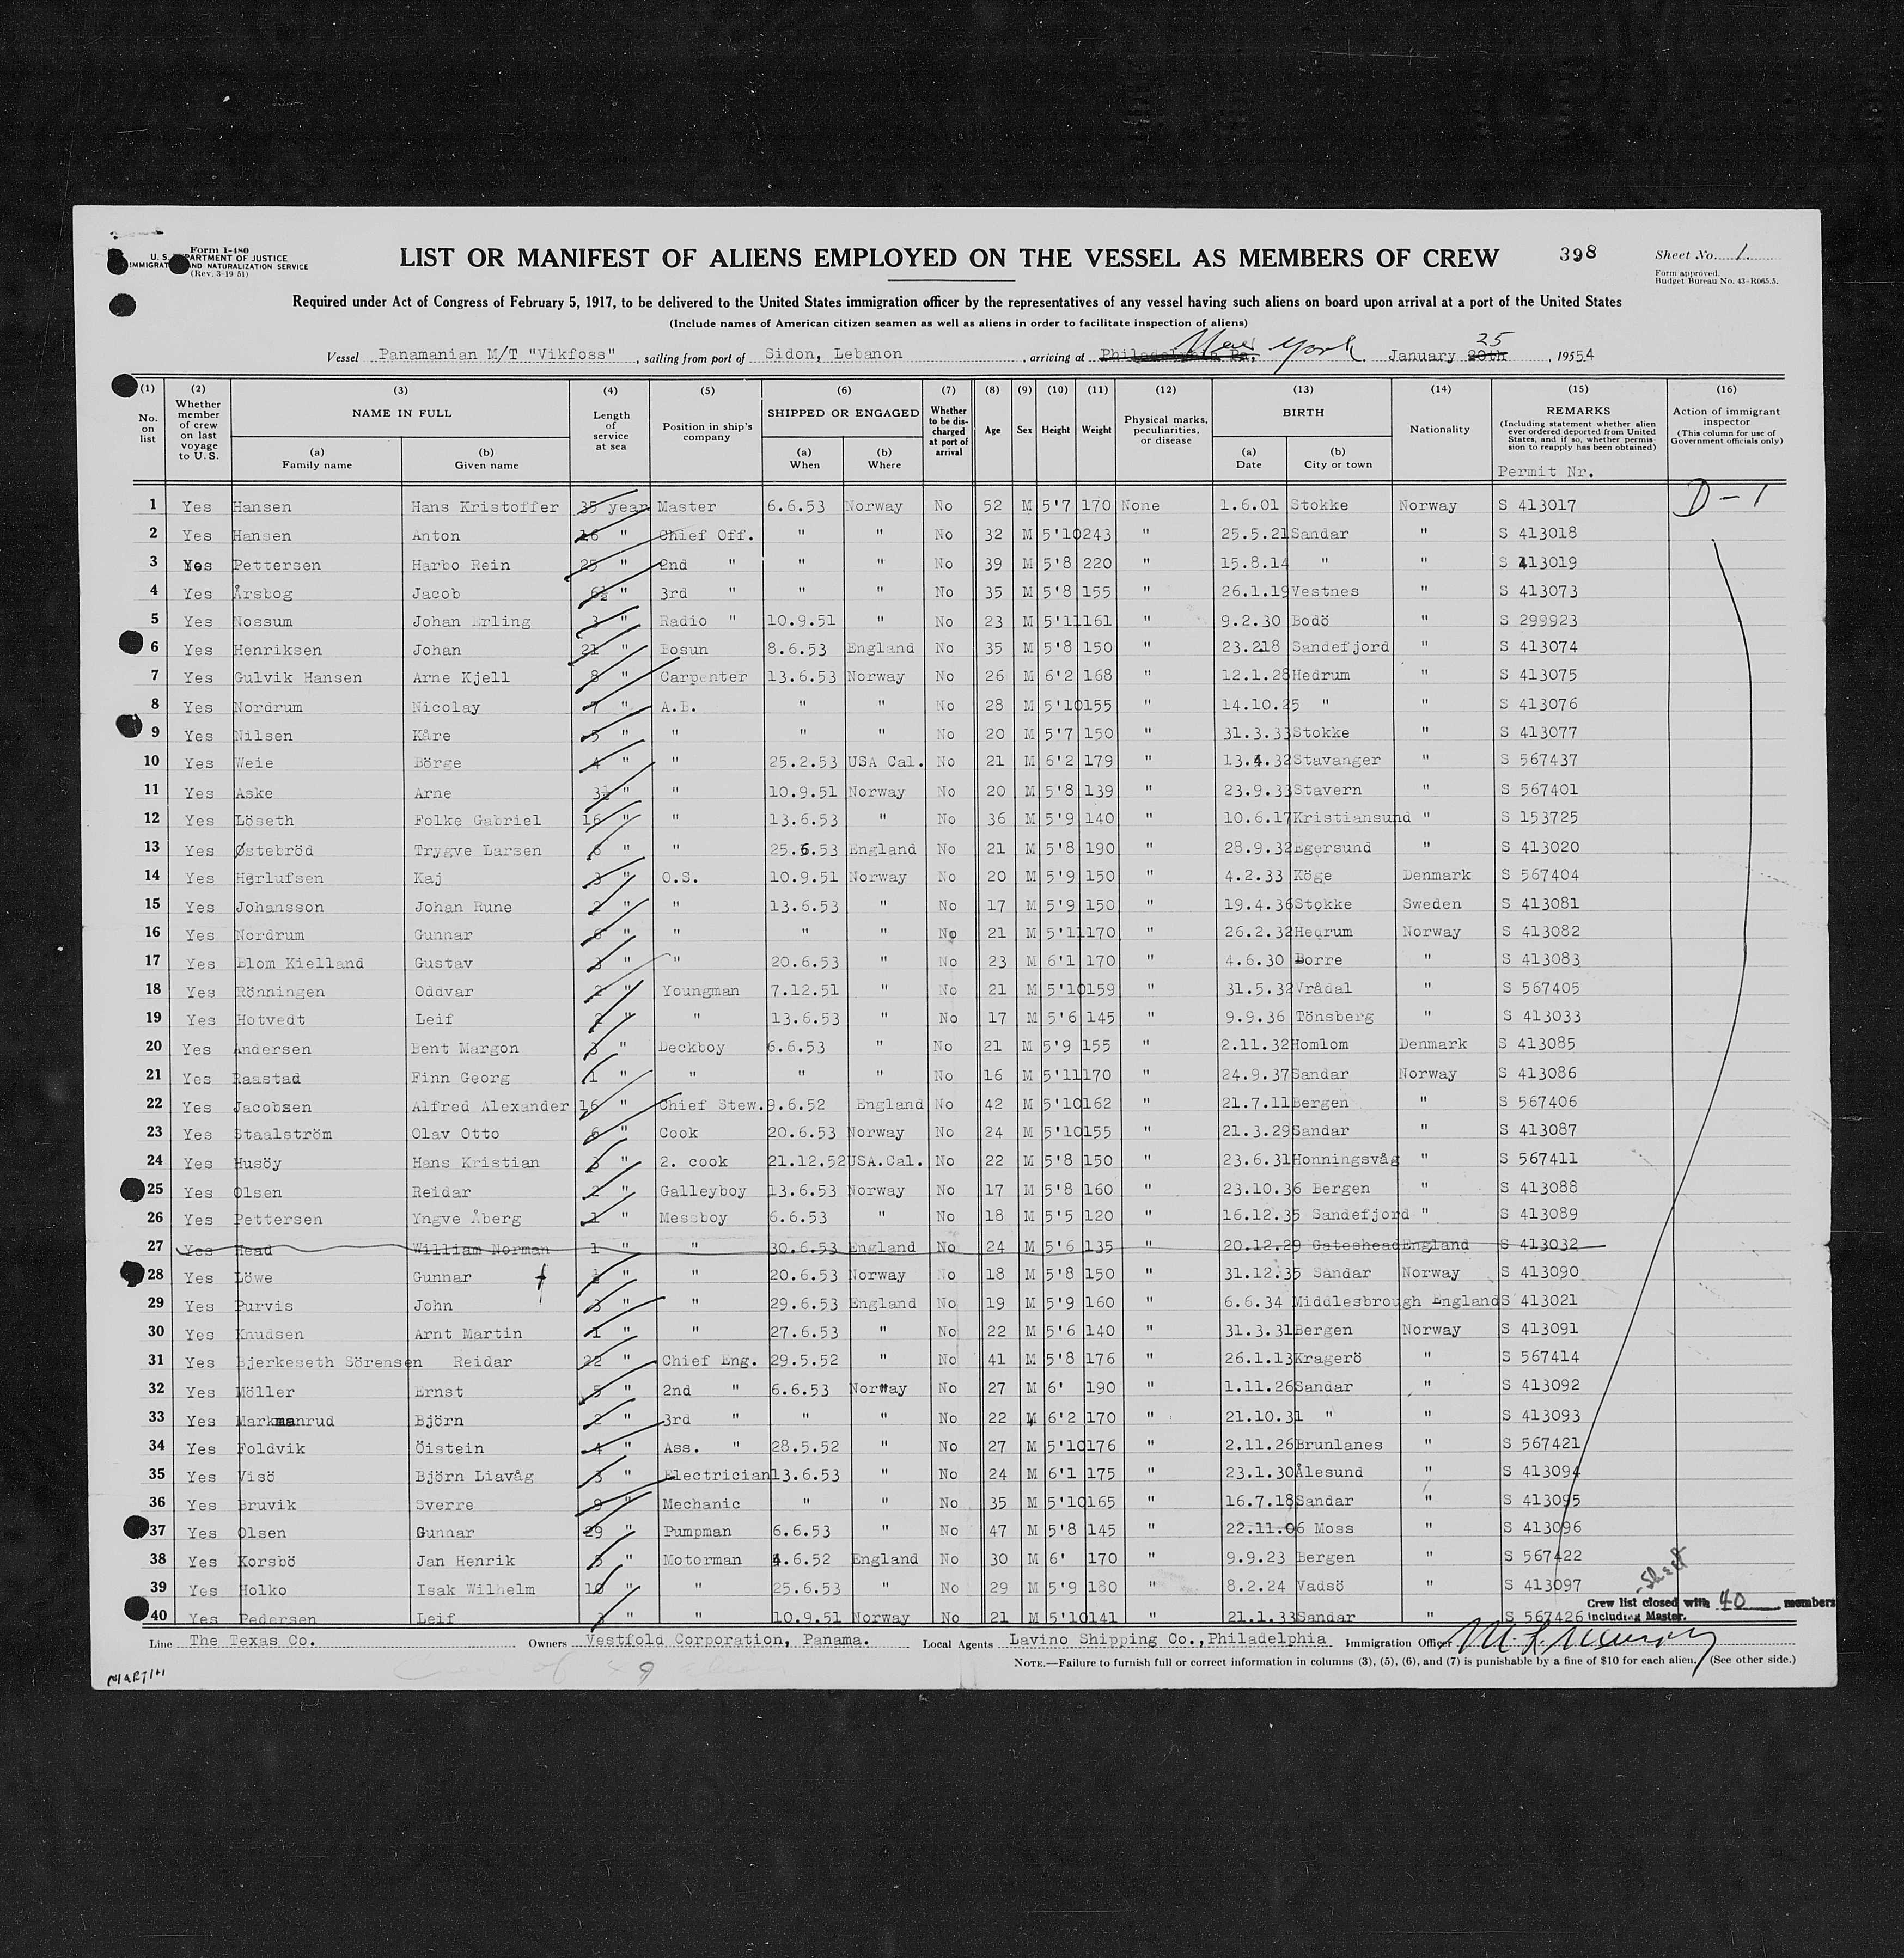 Form I-480
U. S. DEPARTMENT OF JUSTICE
IMMIGRATION AND NATURALIZATION SERVICE
(Rev. 3-19-51)
LIST OR MANIFEST OF ALIENS EMPLOYED ON THE VESSEL AS MEMBERS OF CREW
398
Sheet No. 1.
Form approved.
Budget Bureau No. 43-R065.5.
Required under Act of Congress of February 5, 1917, to be delivered to the United States immigration officer by the representatives of any vessel having such aliens on board upon arrival at a port of the United States
(Include names of American citizen seamen as well as aliens in order to facilitate inspection of aliens)
Vessel Panamanian M/T "Vikfoss", sailing from port of Sidon, Lebanon, arriving at Philadelphia Pa, New York January 20th 25, 19554
(1) No. on list (2) Whether member of crew on last voyage to U.S. (3) NAME IN FULL (a) Family name (b) Given name (4) Length of service at sea (5) Position in ship's company (6) SHIPPED OR ENGAGED (a) When (b) Where (7) Whether to be discharged at port of arrival (8) Age (9) Sex (10) Height (11) Weight (12) Physical marks, peculiarities, or disease (13) BIRTH (a) Date (b) City or town (14) Nationality (15) REMARKS (Including statement whether alien ever ordered deported from United States, and if so, whether permission to reapply has been obtained) Permit Nr. (16) Action of immigrant inspector (This column for use of Government officials only)
1 Yes Hansen Hans Kristoffer 35 year Master 6.6.53 Norway No 52 M 5'7 170 None 1.6.01 Stokke Norway S 413017 D-1
2 Yes Hansen Anton 16 " Chief Off. " " No 32 M 5'10 243 " 25.5.21 Sandar " S 413018
3 Yes Pettersen Harbo Rein 25 " 2nd " " " No 39 M 5'8 220 " 15.8.14 " " S 413019
4 Yes Årsbog Jacob 6½ " 3rd " " " No 35 M 5'8 155 " 26.1.19 Vestnes " S 413073
5 Yes Nossum Johan Erling 3 " Radio " 10.9.51 " No 23 M 5'11 161 " 9.2.30 Bodö " S 299923
6 Yes Henriksen Johan 21 " Bosun 8.6.53 England No 35 M 5'8 150 " 23.218 Sandefjord " S 413074
7 Yes Gulvik Hansen Arne Kjell 8 " Carpenter 13.6.53 Norway No 26 M 6'2 168 " 12.1.28 Hedrum " S 413075
8 Yes Nordrum Nicolay 7 " A.B. " " No 28 M 5'10 155 " 14.10.25 " " S 413076
9 Yes Nilsen Kåre 5 " " " " No 20 M 5'7 150 " 31.3.33 Stokke " S 413077
10 Yes Weie Börge 4 " " 25.2.53 USA Cal. No 21 M 6'2 179 " 13.4.32 Stavanger " S 567437
11 Yes Aske Arne 3½ " " 10.9.51 Norway No 20 M 5'8 139 " 23.9.33 Stavern " S 567401
12 Yes Löseth Folke Gabriel 16 " " 13.6.53 " No 36 M 5'9 140 " 10.6.17 Kristiansund " S 153725
13 Yes Østebröd Trygve Larsen 6 " " 25.6.53 England No 21 M 5'8 190 " 28.9.32 Egersund " S 413020
14 Yes Herlufsen Kaj 3 " O.S. 10.9.51 Norway No 20 M 5'9 150 " 4.2.33 Köge Denmark S 567404
15 Yes Johansson Johan Rune 2 " " 13.6.53 " No 17 M 5'9 150 " 19.4.36 Stokke Sweden S 413081
16 Yes Nordrum Gunnar 6 " " " " No 21 M 5'11 170 " 26.2.32 Hedrum Norway S 413082
17 Yes Blom Kielland Gustav 3 " " 20.6.53 " No 23 M 6'1 170 " 4.6.30 Borre " S 413083
18 Yes Rönningen Oddvar 2 " Youngman 7.12.51 " No 21 M 5'10 159 " 31.5.32 Vrådal " S 567405
19 Yes Hotvedt Leif 2 " " 13.6.53 " No 17 M 5'6 145 " 9.9.36 Tönsberg " S 413033
20 Yes Andersen Bent Margon 3 " Deckboy 6.6.53 " No 21 M 5'9 155 " 2.11.32 Homlom Denmark S 413085
21 Yes Raastad Finn Georg 1 " " " " No 16 M 5'11 170 " 24.9.37 Sandar Norway S 413086
22 Yes Jacobsen Alfred Alexander 16 " Chief Stew. 9.6.52 England No 42 M 5'10 162 " 21.7.11 Bergen " S 567406
23 Yes Staalström Olav Otto 6 " Cook 20.6.53 Norway No 24 M 5'10 155 " 21.3.29 Sandar " S 413087
24 Yes Husöy Hans Kristian 3 " 2. cook 21.12.52 USA.Cal. No 22 M 5'8 150 " 23.6.31 Honningsvåg " S 567411
25 Yes Olsen Reidar 2 " Galleyboy 13.6.53 Norway No 17 M 5'8 160 " 23.10.36 Bergen " S 413088
26 Yes Pettersen Yngve Åberg 1 " Messboy 6.6.53 " No 18 M 5'5 120 " 16.12.35 Sandefjord " S 413089
27 Yes Head William Norman 1 " " 30.6.53 England No 24 M 5'6 135 " 20.12.29 Gateshead England S 413032
28 Yes Löwe Gunnar ½ " " 20.6.53 Norway No 18 M 5'8 150 " 31.12.35 Sandar Norway S 413090
29 Yes Purvis John 3 " " 29.6.53 England No 19 M 5'9 160 " 6.6.34 Middlesbrough England S 413021
30 Yes Knudsen Arnt Martin 1 " " 27.6.53 " No 22 M 5'6 140 " 31.3.31 Bergen Norway S 413091
31 Yes Bjerkeseth Sörensen Reidar 22 " Chief Eng. 29.5.52 " No 41 M 5'8 176 " 26.1.13 Kragerö " S 567414
32 Yes Möller Ernst 5 " 2nd " 6.6.53 Norway No 27 M 6' 190 " 1.11.26 Sandar " S 413092
33 Yes Markmanrud Björn 2 " 3rd " " " No 22 M 6'2 170 " 21.10.31 " " S 413093
34 Yes Foldvik Öistein 4 " Ass. " 28.5.52 " No 27 M 5'10 176 " 2.11.26 Brunlanes " S 567421
35 Yes Visö Björn Liavåg 3 " Electrician 13.6.53 " No 24 M 6'1 175 " 23.1.30 Ålesund " S 413094
36 Yes Bruvik Sverre 9 " Mechanic " " No 35 M 5'10 165 " 16.7.18 Sandar " S 413095
37 Yes Olsen Gunnar 29 " Pumpman 6.6.53 " No 47 M 5'8 145 " 22.11.06 Moss " S 413096
38 Yes Korsbö Jan Henrik 5 " Motorman 4.6.52 England No 30 M 6' 170 " 9.9.23 Bergen " S 567422
39 Yes Holko Isak Wilhelm 10 " " 25.6.53 " No 29 M 5'9 180 " 8.2.24 Vadsö " S 413097
40 Yes Pedersen Leif 3 " " 10.9.51 Norway No 21 M 5'10 141 " 21.1.33 Sandar " S 567426
Sheet
Crew list closed with 40 members
including Master.
Line The Texas Co. Owners Vestfold Corporation, Panama. Local Agents Lavino Shipping Co.,Philadelphia Immigration Officer
NOTE.—Failure to furnish full or correct information in columns (3), (5), (6), and (7) is punishable by a fine of $10 for each alien. (See other side.)
MARTIN